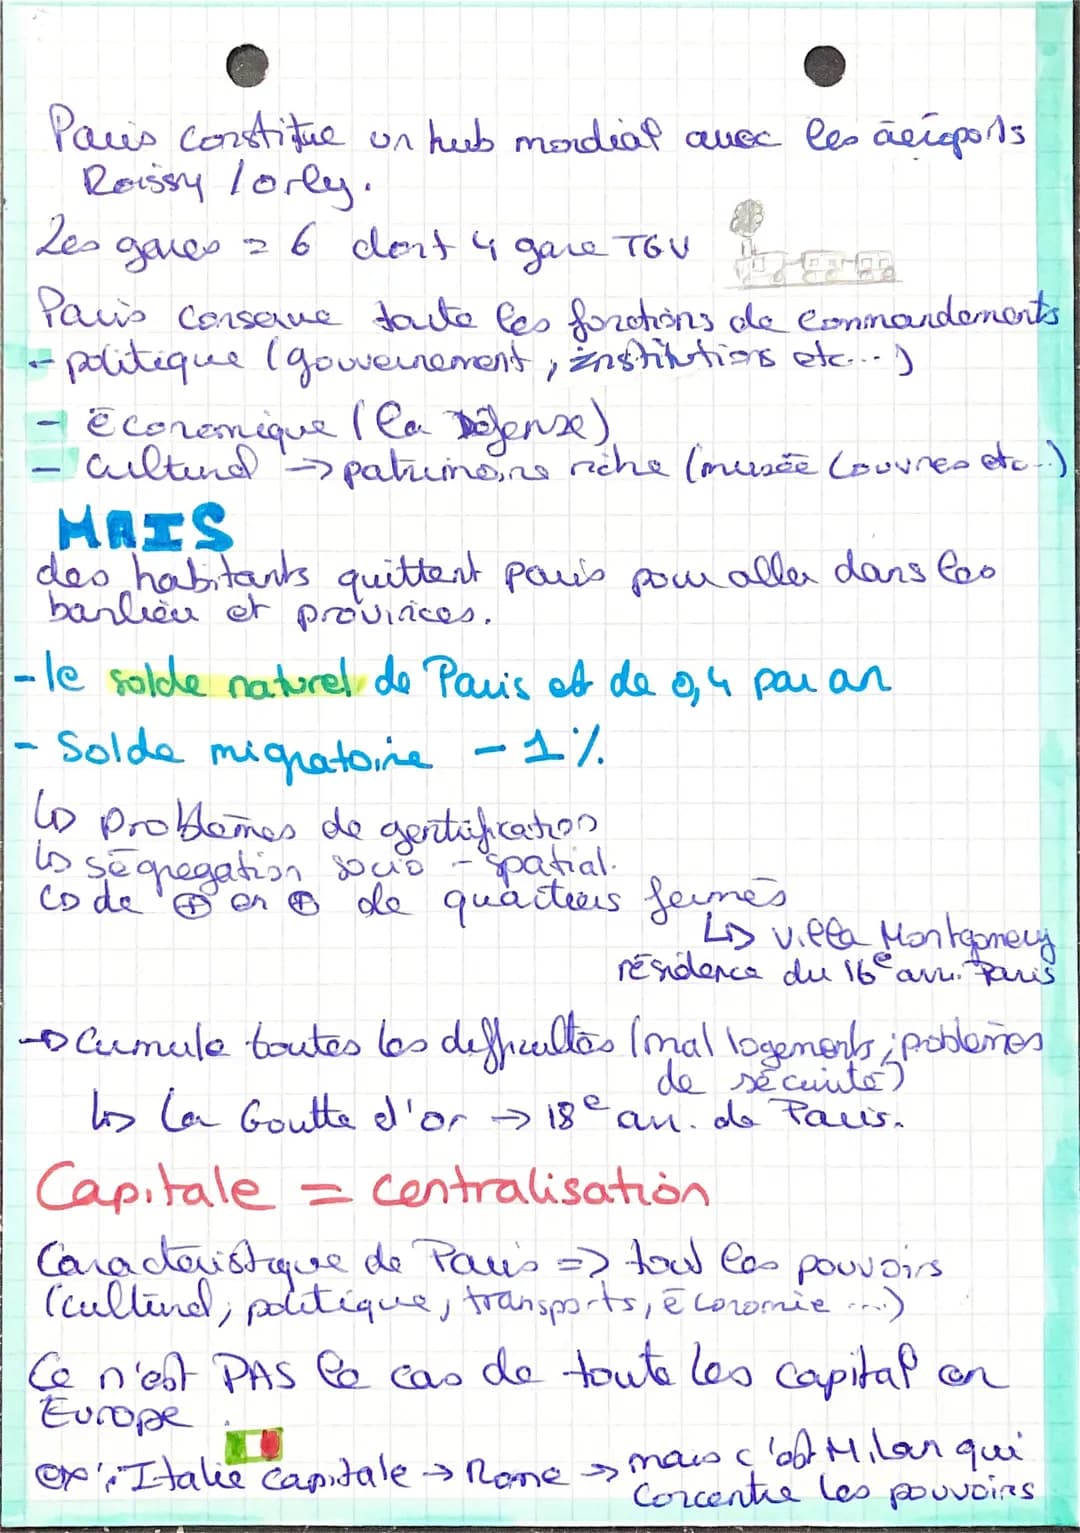 Paris constitue un hub mondial avec les aéroports
Roissy / orly.
Les gares = 6 dont 4 gare TGV
Paris conserve toute les fonctions de commandements
- politique (gouvernement, institutions etc...)
- économique (la Défense)
- culturel → patrimoine riche (musée Louvres etc...)
MAIS
des habitants quittent paris pour aller dans les
banlieu et provinces.
- le solde naturel de Paris et de 0,4 par an
- Solde migratoire - 1%
↳ problèmes de gentrification
↳ ségrégation socio - spatial.
↳ de ⊕ en ⊕ de quartiers fermés
↳ villa Montgomery
résidence du 16e arr. Paris
→ Cumule toutes les difficultés (mal logements ; problèmes
de sécurité)
↳ la Goutte d'or → 18e arr. de Paris.
Capitale = centralisation
Caractéristique de Paris => tout les pouvoirs
(culturel, politique, transports, économie ...)
Ce n'est PAS le cas de toute les capital en
Europe.
ex : Italie capitale → Rome → mais c'est Milan qui
concentre les pouvoirs